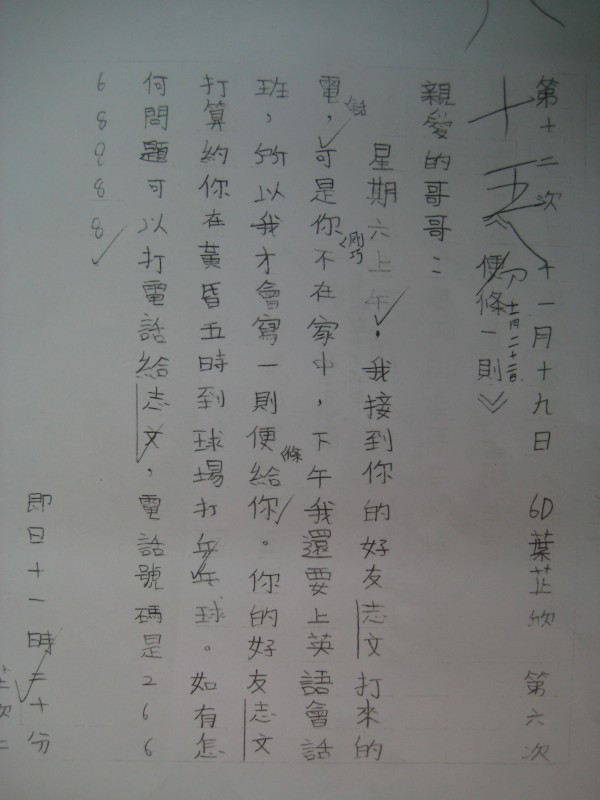 第十二次 十一月十九日 6D 葉芷欣 第六次
十五
《便條一則》
十一月二十二日
親愛的哥哥：
星期六上午，我接到你的好友志文打來的
電，可是你不在家中，下午我還要上英語會話
話
剛巧
班，所以我才會寫一則便給你。你的好友志文
條
打算約你在黃昏五時到球場打乒乓球。如有怎
何問題可以打電話給志文，電話號碼是266
68888
即日十一時二十分